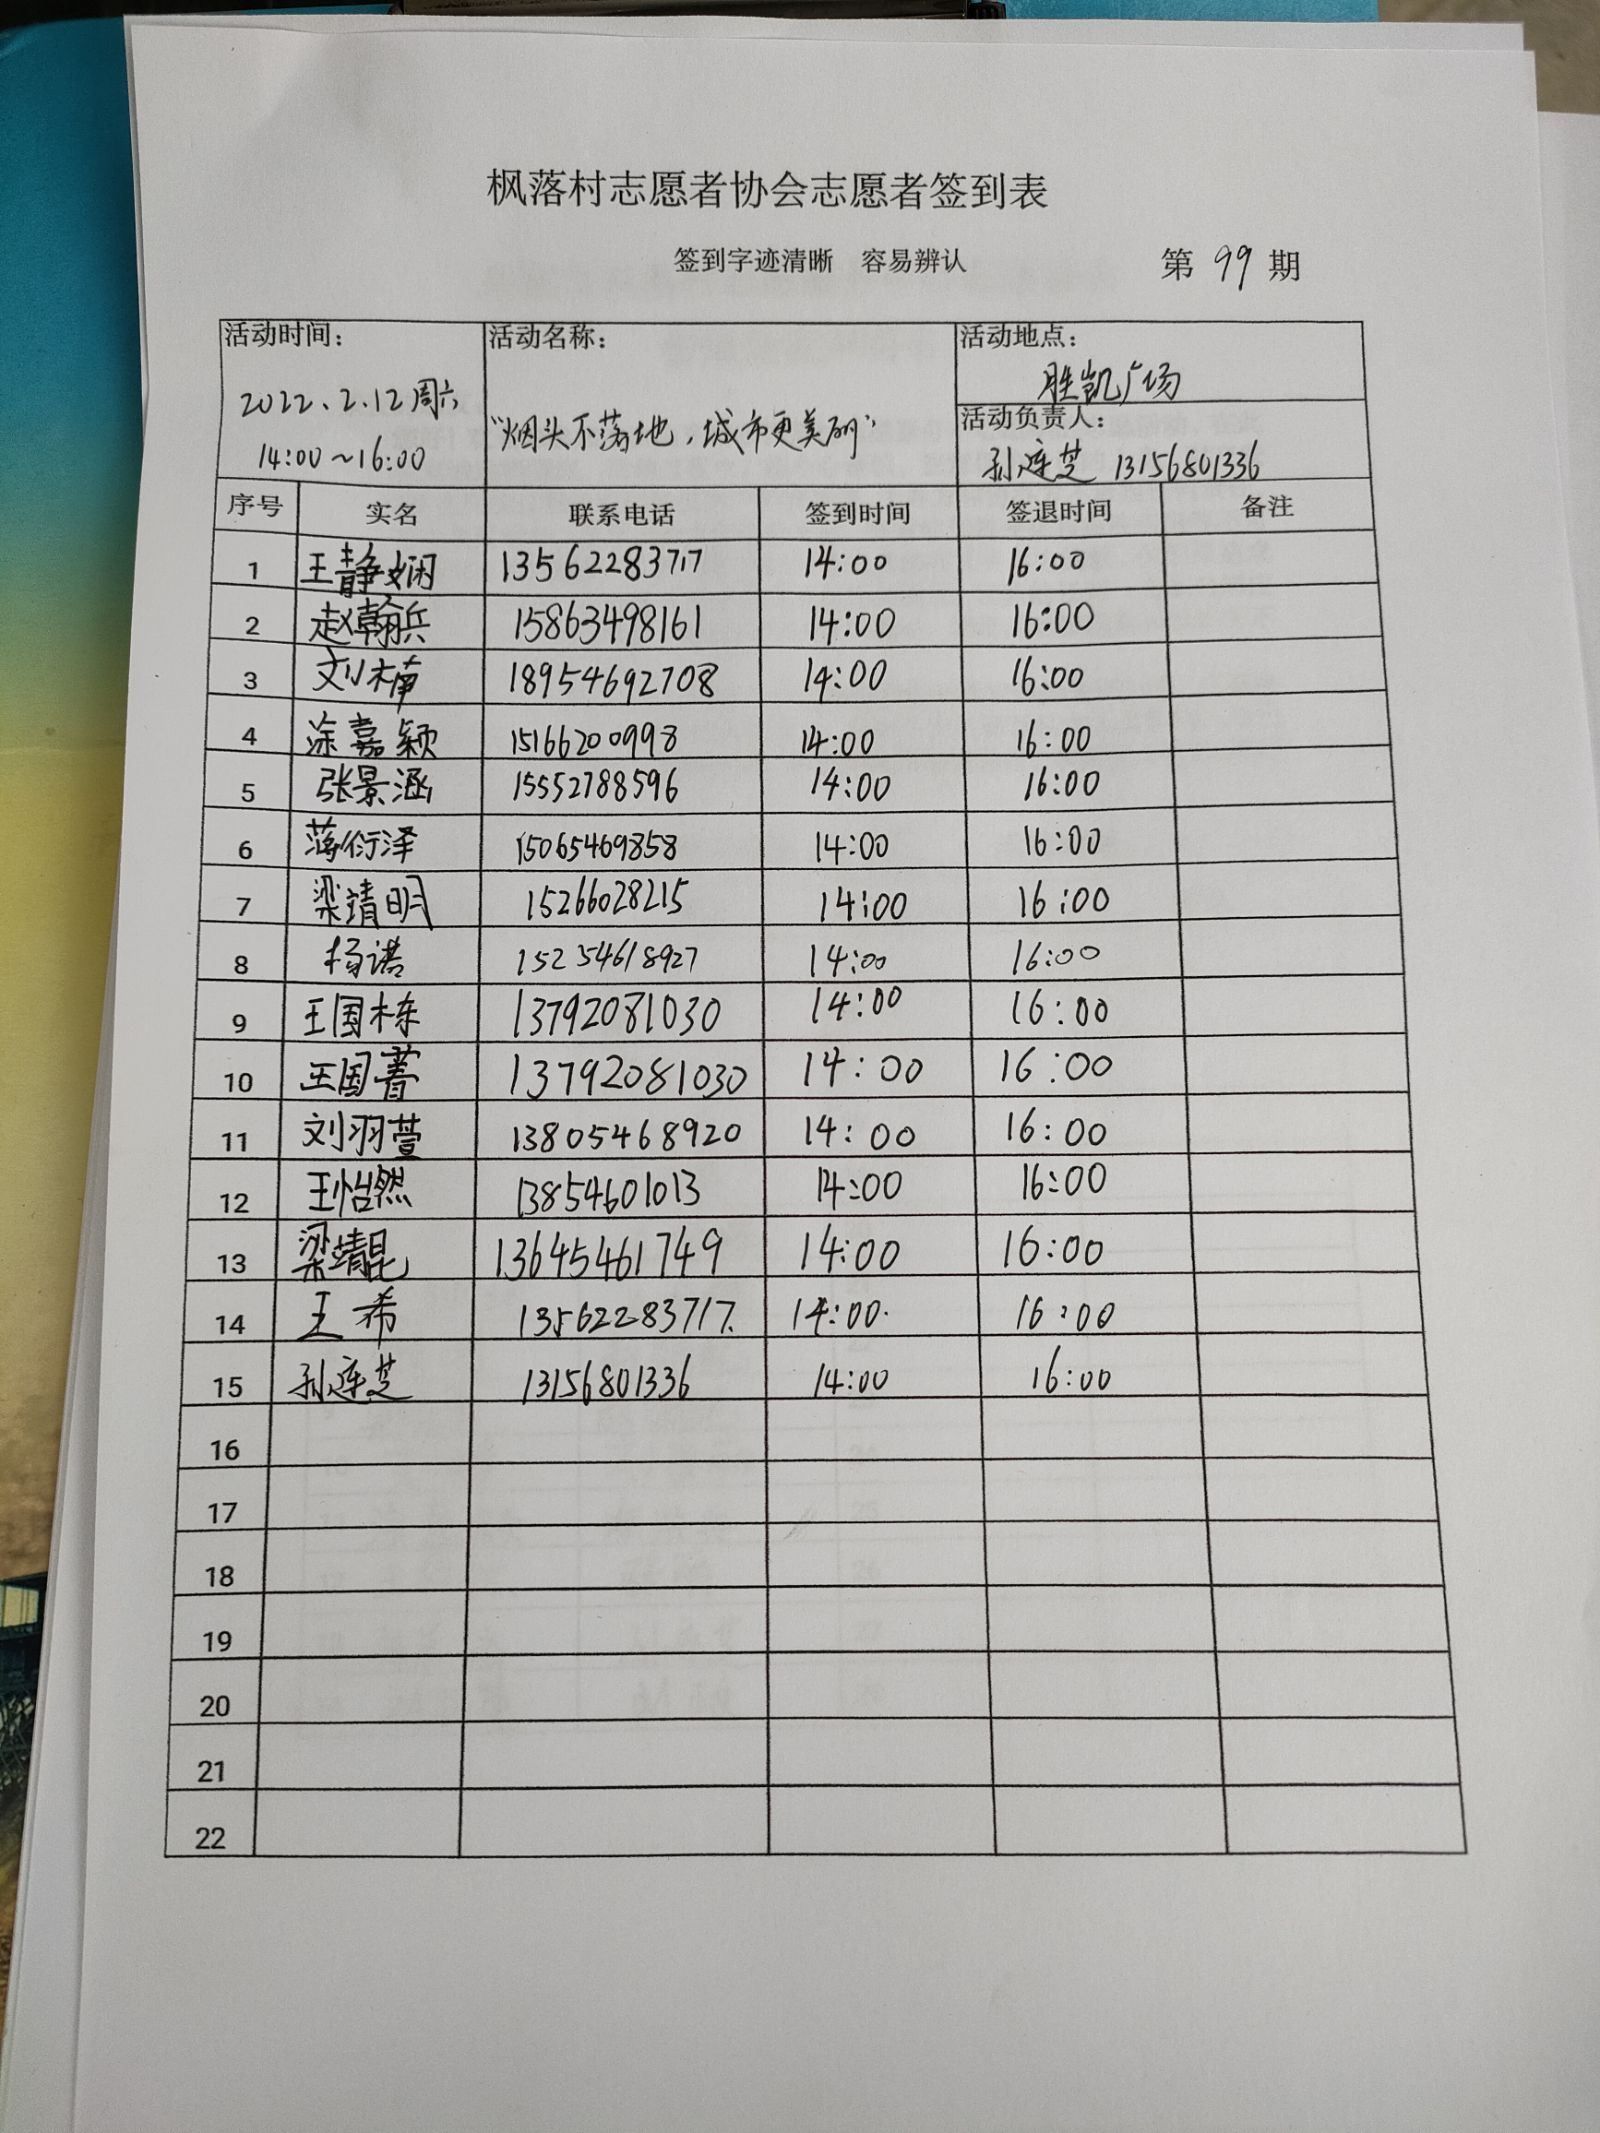 枫落村志愿者协会志愿者签到表
签到字迹清晰 容易辨认 第 99 期
活动时间: 活动名称: 活动地点:
胜凯广场
2022.2.12周六 "烟头不落地,城市更美丽" 活动负责人:
14:00~16:00 孙连芝 13156801336
序号 实名 联系电话 签到时间 签退时间 备注
1 王静娴 13562283717 14:00 16:00
2 赵翰兵 15863498161 14:00 16:00
3 刘楠 18954692708 14:00 16:00
4 涂嘉颖 15166200998 14:00 16:00
5 张景涵 15552788596 14:00 16:00
6 蒋衍泽 15065469858 14:00 16:00
7 梁靖明 15266028215 14:00 16:00
8 杨诺 15254618927 14:00 16:00
9 王国栋 13792081030 14:00 16:00
10 王国菁 13792081030 14:00 16:00
11 刘羽萱 13805468920 14:00 16:00
12 王怡然 13854601013 14:00 16:00
13 梁靖昆 13645461749 14:00 16:00
14 王希 13562283717. 14:00. 16:00
15 孙连芝 13156801336 14:00 16:00
16
17
18
19
20
21
22